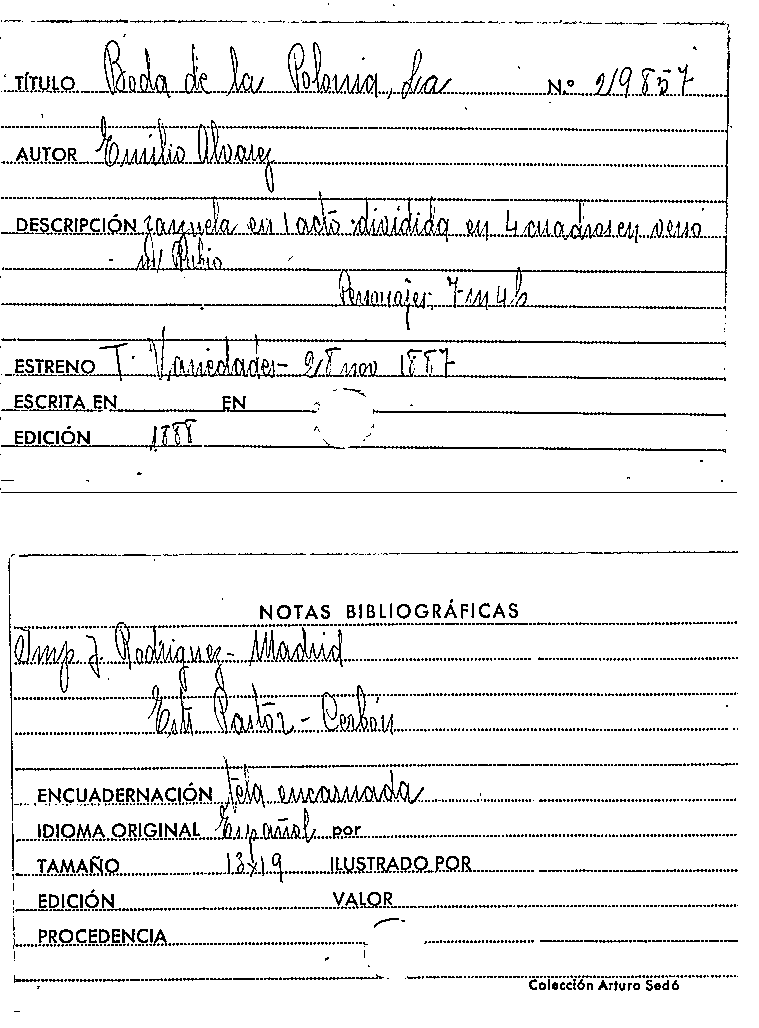 TÍTULO Boda de la Polonia, La N.º 219857
AUTOR Emilio Alvarez
DESCRIPCIÓN zarzuela en 1 acto dividida en 4 cuadros en verso
m/ Rubio
Personajes. 7 m 4 h
ESTRENO T. Variedades - 28 nov 1887
ESCRITA EN EN
EDICIÓN 1888
NOTAS BIBLIOGRÁFICAS
Imp J. Rodriguez - Madrid
Pastor - Cerbón
ENCUADERNACIÓN tela encarnada
IDIOMA ORIGINAL Español por
TAMAÑO 13x19 ILUSTRADO POR
EDICIÓN VALOR
PROCEDENCIA
Colección Arturo Sedó